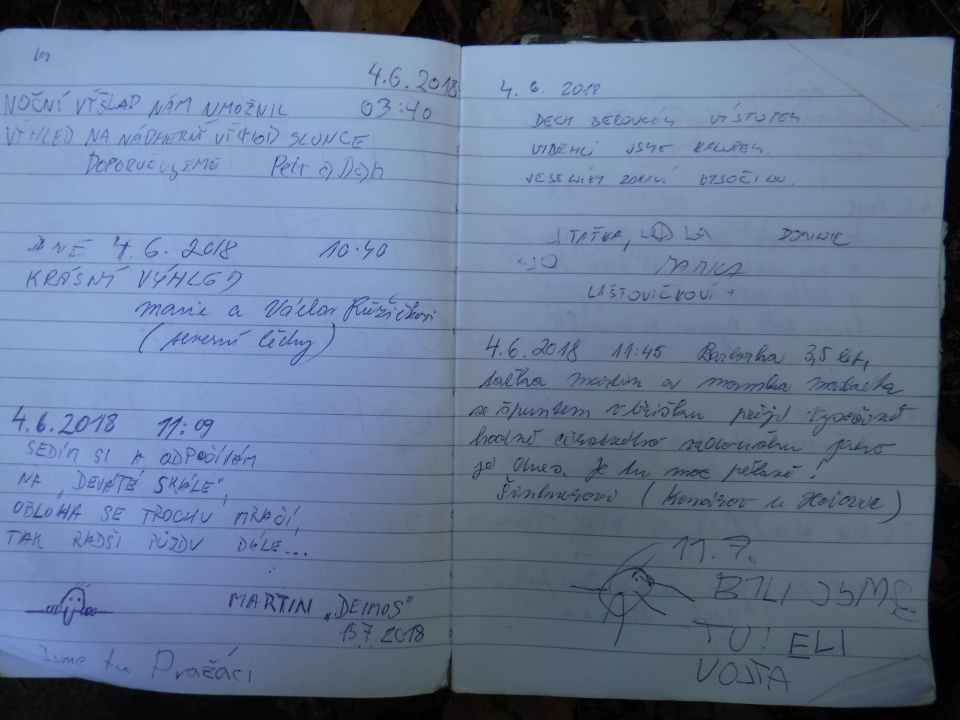 4.6.2018
NOČNÍ VÝŠLAP NÁM UMOŽNIL 03:40
VÝHLED NA NÁDHERNÝ VÝCHOD SLUNCE
DOPORUČUJEME Petr a
DNE 4.6.2018 10:40
KRÁSNÍ VÝHLED
Marie a Václav Růžičkovi
(severní Čechy)
4.6.2018 11:09
SEDÍM SI A ODPOČÍVÁM
NA „DEVÁTÉ SKÁLE",
OBLOHA SE TROCHU MRAČÍ,
TAK RADŠI PŮJDU DÁLE...
MARTIN „DEIMOS"
13.7.2018
Jsme tu Pražáci
4.6.2018
DECH BEROUCÍM VÝSTUPEM
VYBĚHLI JSME KALUPEM.
VESELÍM ZDRAVÍ VYSOČINU.
TAŤKA, DOMINIK
MAMKA
LAŠTOVIČKOVI
4.6.2018 11:45 Barborka 3,5 let,
taťka Martin a mamka
se špuntem v bříšku přejí Vysočině
hodně
jo dnes. Je tu moc pěkně!
(Komárov u Hořovic)
11.7.
BYLI JSME
TU! ELI
VOJTA